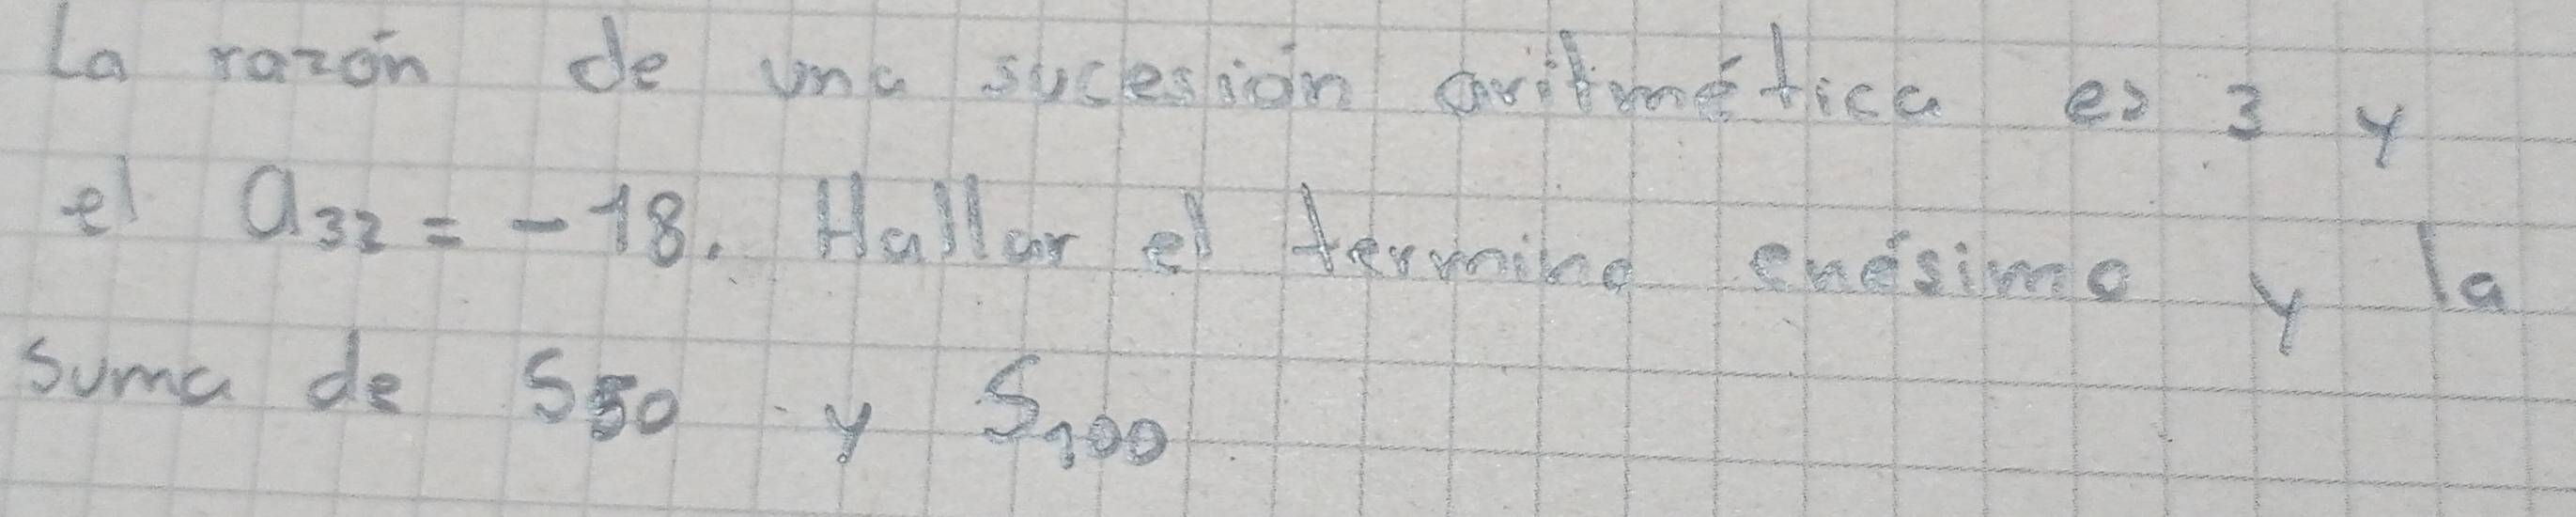 La razón de una sucesión aritmética es 3 y
el a₃₂ = -18. Hallar el termino enésimo y la
suma de S₅₀ y S₁₀₀